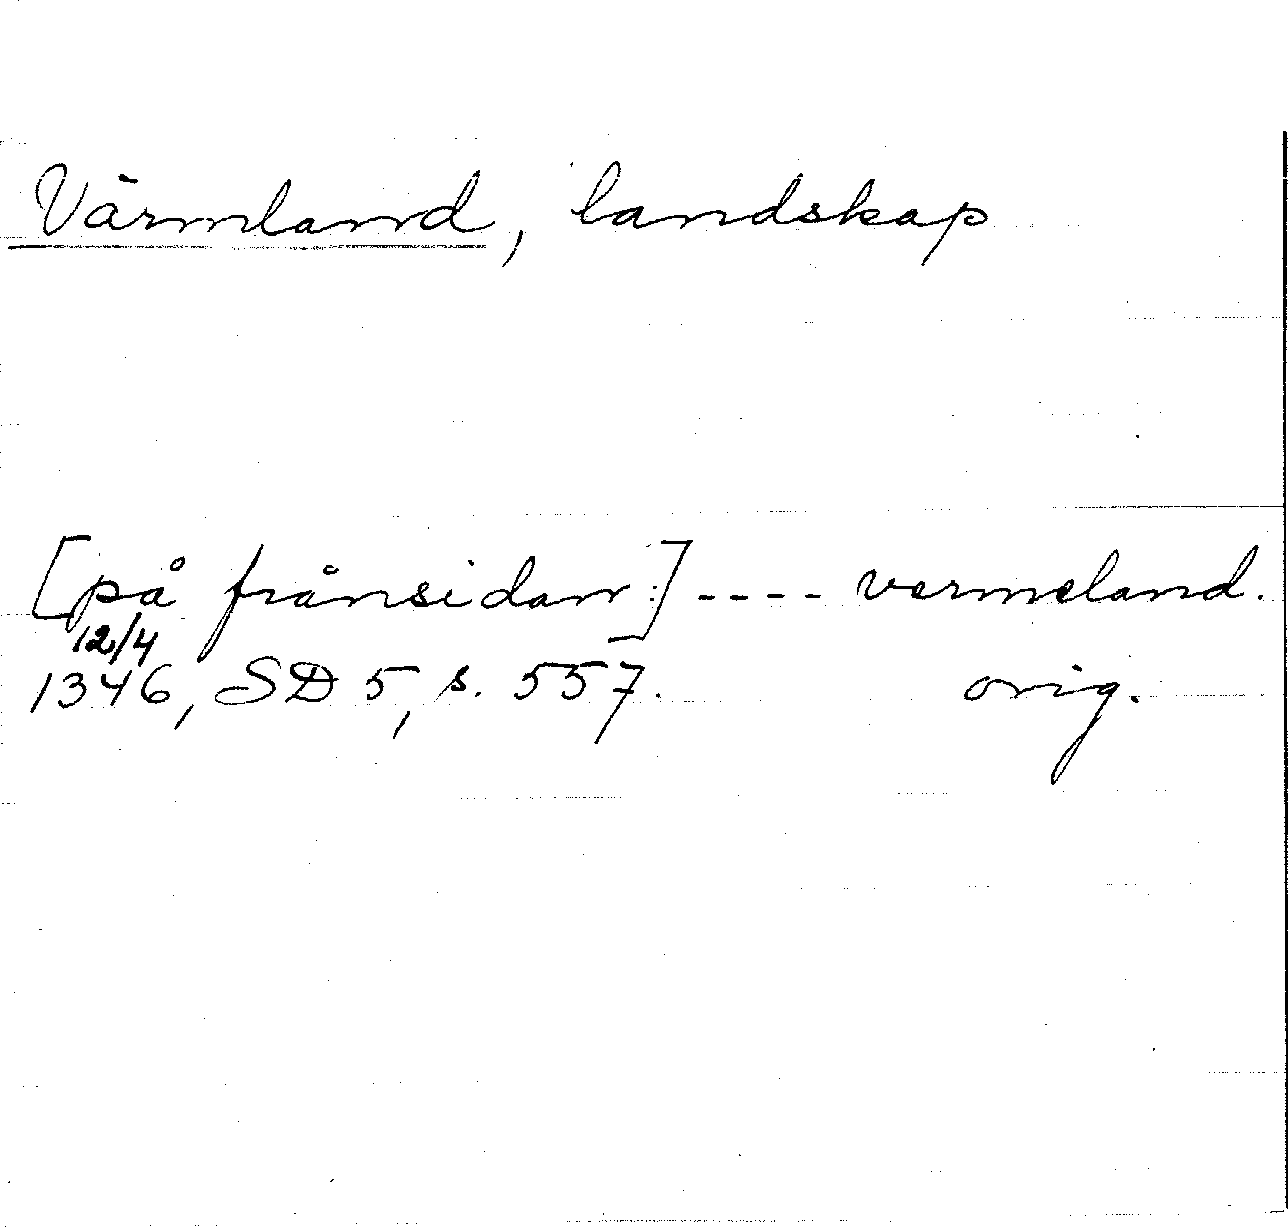 Värmland, landskap
[på frånsidan:] ---- vermeland.
12/4
1346, SD 5, s. 557. orig.